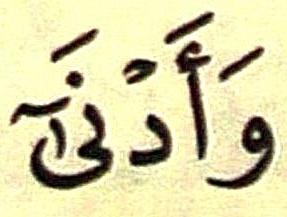 وَأَدْنَىٰٓ